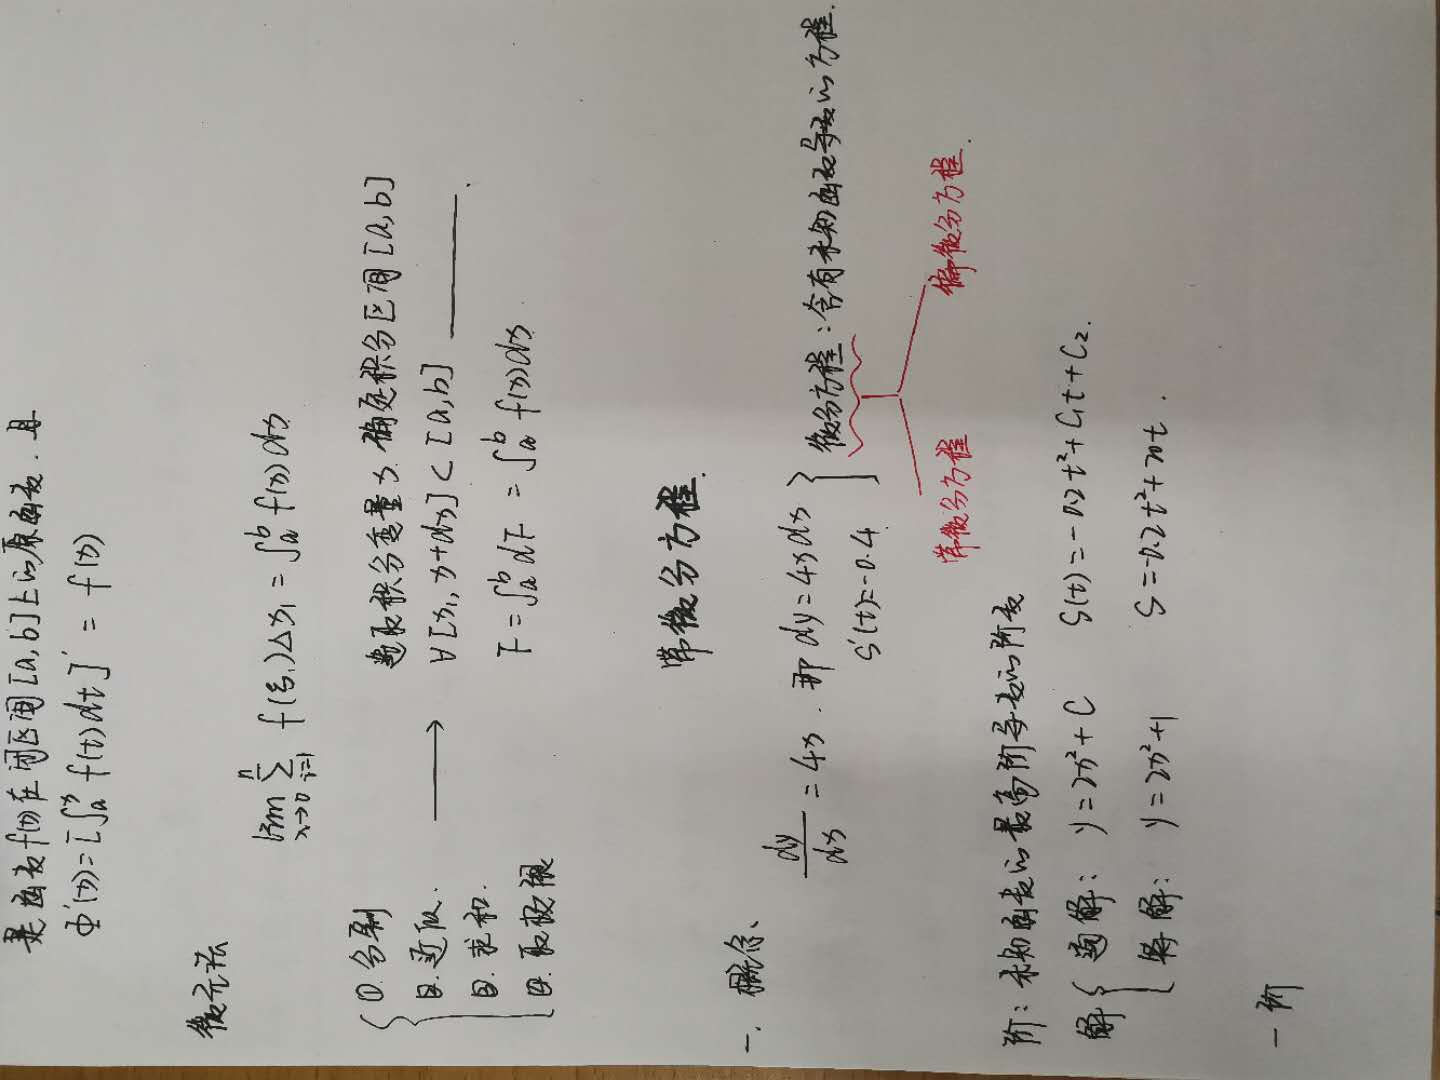 是函数f(x)在闭区间[a,b]上的原函数.且
Φ'(x)=[∫ₐˣ f(t)dt]' = f(x)
微元法
lim λ→0 ∑ i=1 n f(ξ₁)Δx₁ = ∫ₐᵇ f(x)dx
①.分割 选取积分变量x.确定积分区间[a,b]
②.近似. → ∀[x₁,x+dx]<[a,b] ——.
③.求和. F=∫ₐᵇdF = ∫ₐᵇ f(x)dx
④.取极限
常微分方程.
一.概念、
dy/dx = 4x . 那 dy=4xdx } 微分方程:含有未知函数导数的方程.
S'(t)=-0.4
常微分方程 偏微分方程.
阶:未知函数的最高阶导数的阶数
解{ 通解: y=2x²+C S(t)=-0.2t²+C₁t+C₂.
特解: y=2x²+1 S=-0.2t²+20t.
一阶